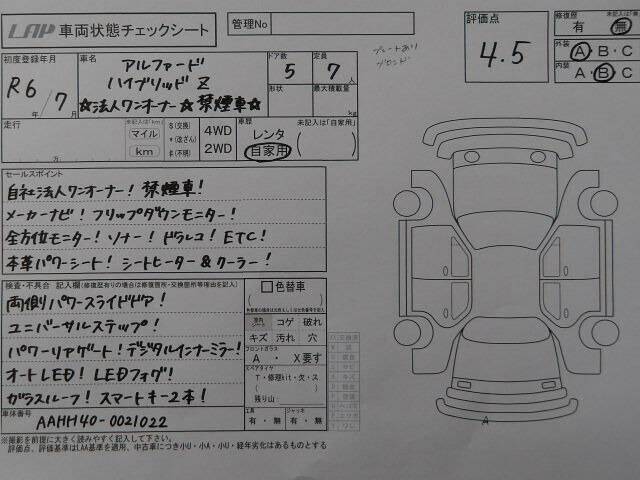 LAP 車両状態チェックシート
管理No
評価点
4.5
修復歴
有・無
外装
A・B・C
内装
A・B・C
初度登録年月
R6年/7月
車名
アルファード
ハイブリッド Z
☆法人ワンオーナー☆禁煙車☆
ドア数
5
定員
7人
形状
最大積載量
kg
プレートあり
走行
万
未記入は「km」
マイル
km
$(交換)
*(改ざん)
#(不明)
4WD
2WD
車歴
未記入は「自家用」
レンタ
自家用
( )
セールスポイント
自社法人ワンオーナー! 禁煙車!
メーカーナビ! フリップダウンモニター!
全方位モニター! ソナー! ドラレコ! ETC!
本革パワーシート! シートヒーター&クーラー!
検査・不具合 記入欄(修復歴有りの場合は修復箇所・交換箇所等理由を記入)
両側パワースライドドア!
ユニバーサルステップ!
パワーリアゲート! デジタルインナーミラー!
オートLED! LEDフォグ!
ガラスルーフ! スマートキー2本!
色替車
( )
室内
コゲ
破れ
キズ
汚れ
穴
フロントガラス
A ・ X要す
スペアタイヤ
T・修理kit・欠・ス
残り山:
工具
有・無
ジャッキ
有・無
車体番号
AAHH40-0021022
A
※撮影を前提に大きく読みやすく記入して下さい。
評価点、評価基準はLAA基準を適用、中古車につき小U・小A・小U・経年劣化はあるものとする